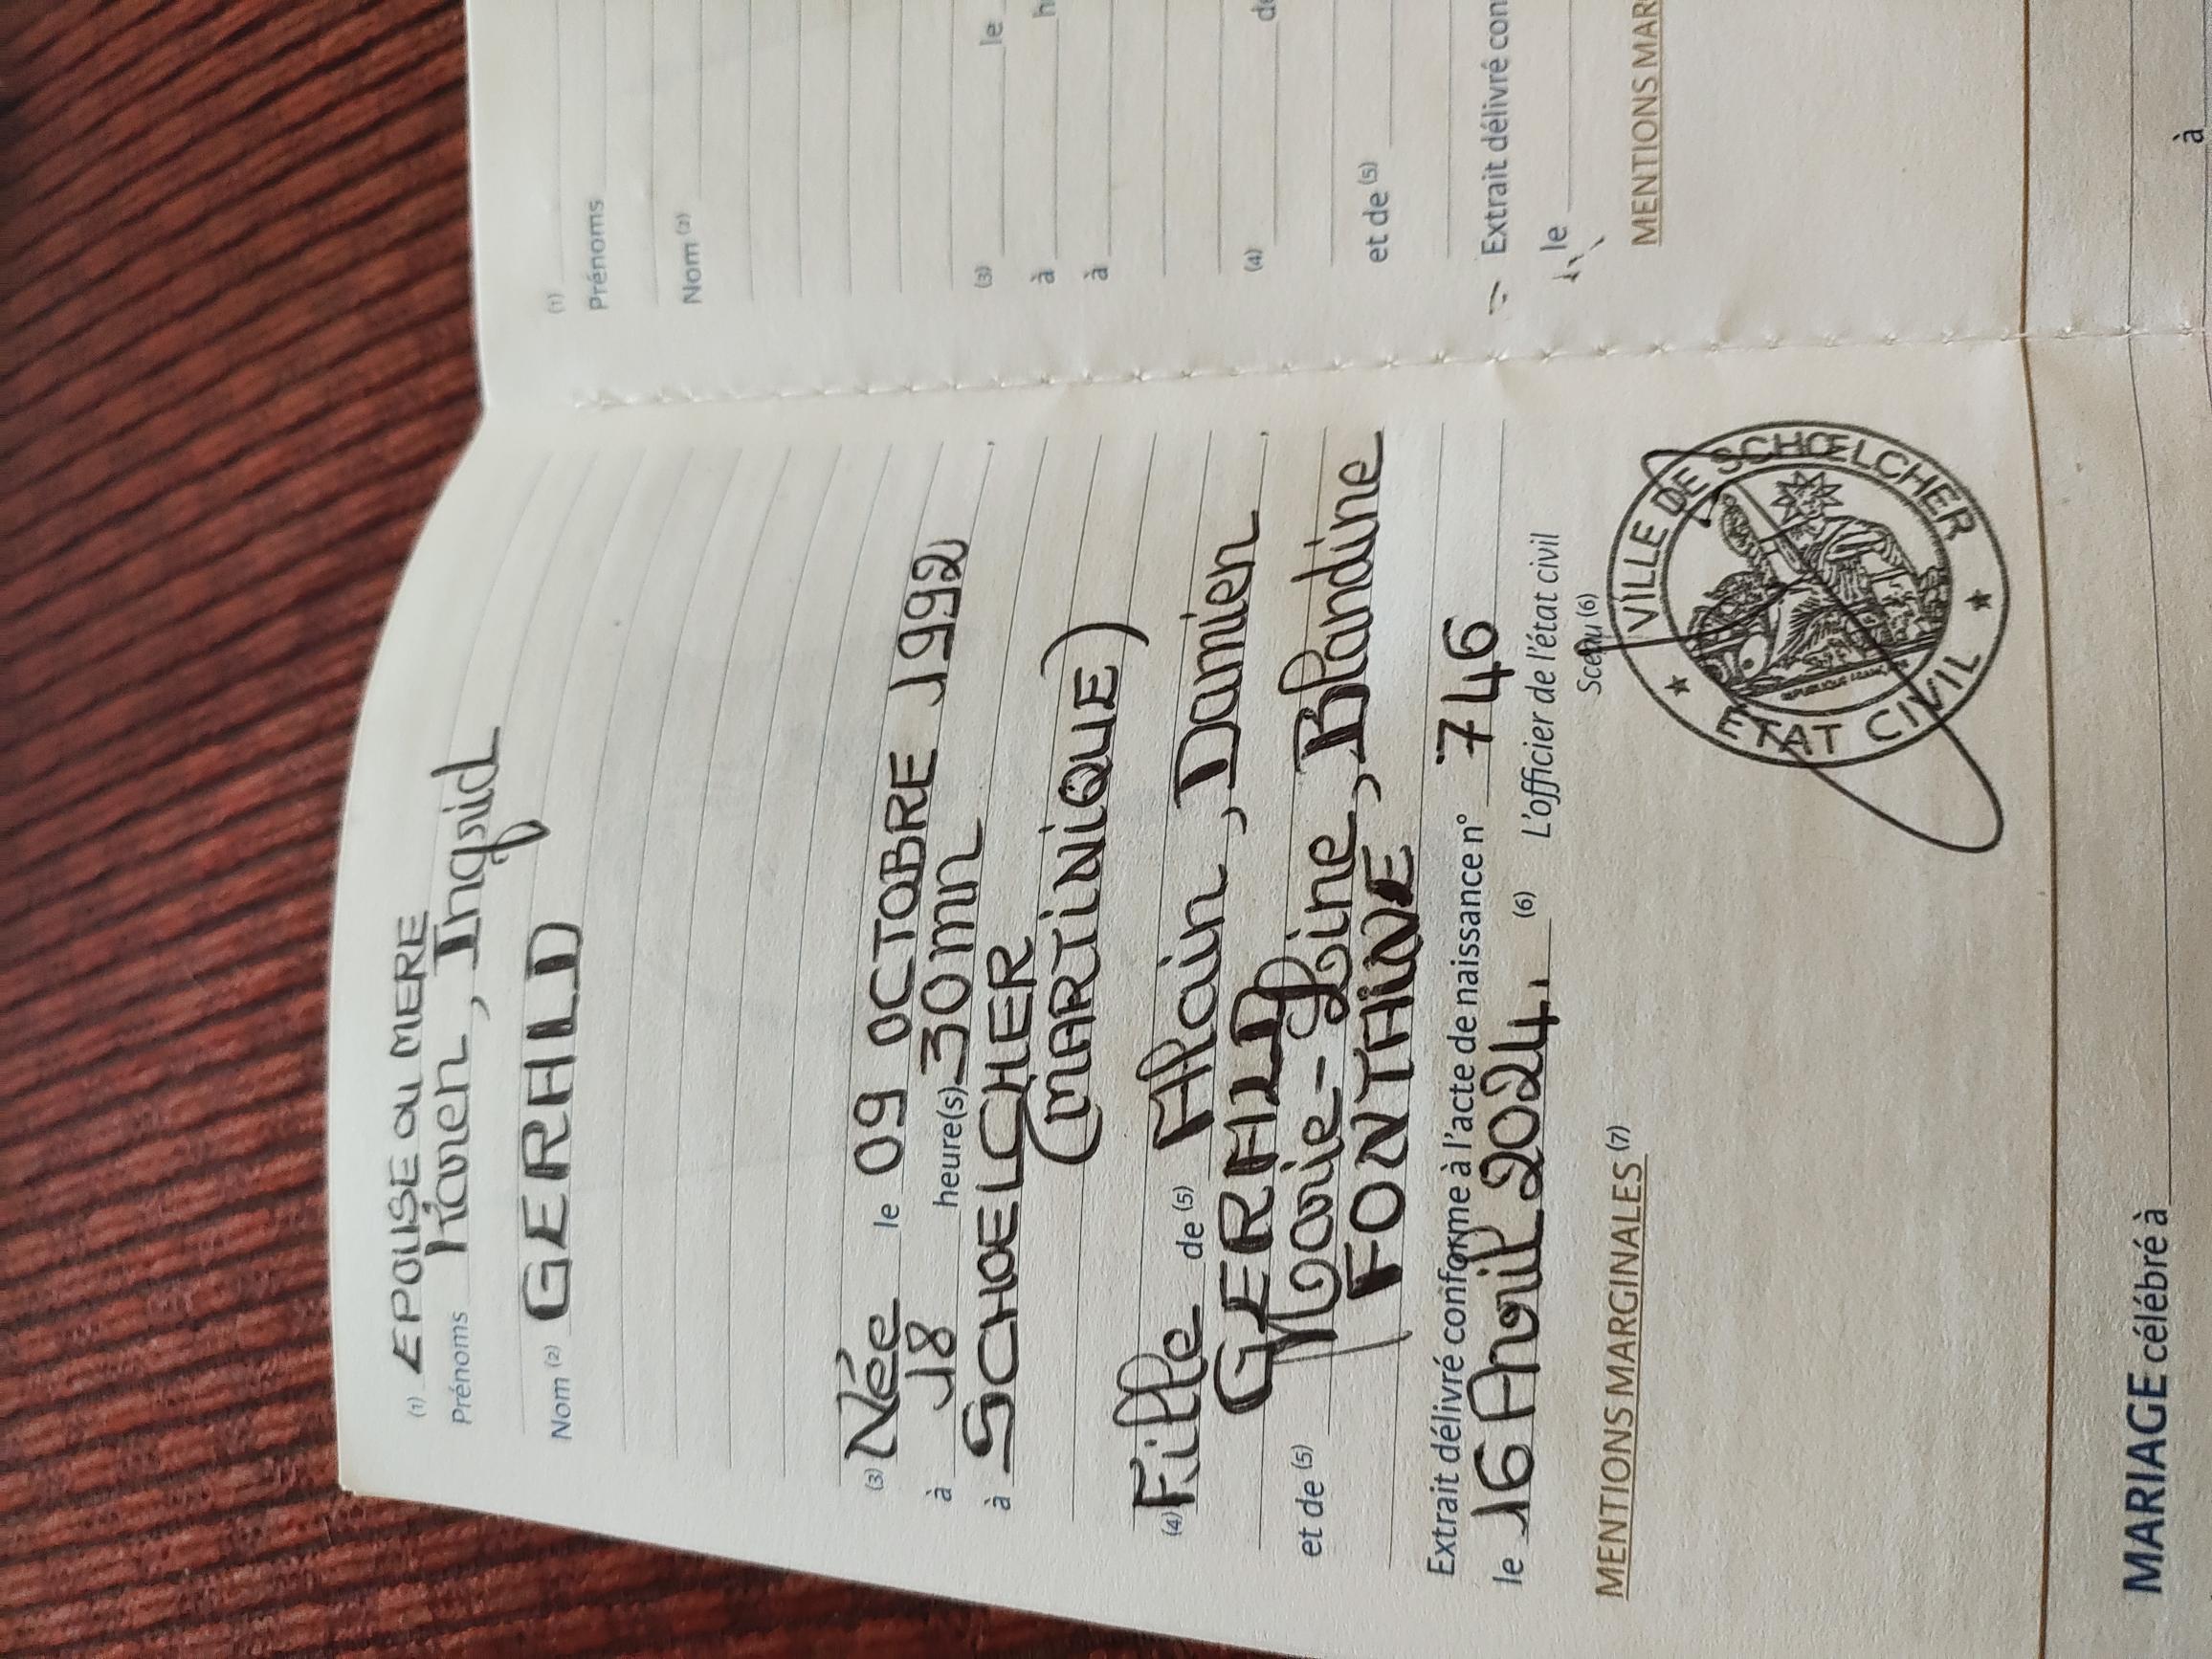 (1) EPOUSE OU MERE
Prénoms Karen, Ingrid
Nom (2) GERALD
(3) Née le 09 OCTOBRE 1992
à 18 heure(s) 30 mn
à SCHOELCHER
(MARTINIQUE)
(4) Fille de (5) Alain, Damien
GERALD
et de (5) Marie-Line, Blandine
FONTAINE
Extrait délivré conforme à l'acte de naissance n° 746
le 16 Avril 2024, (6) L'officier de l'état civil
Sceau (6)
VILLE DE SCHŒLCHER
ETAT CIVIL
MENTIONS MARGINALES (7)
MARIAGE célébré à
(1)
Prénoms
Nom (2)
(3) le
à h
à
(4) de
et de (5)
Extrait délivré con
le
MENTIONS MAR
à